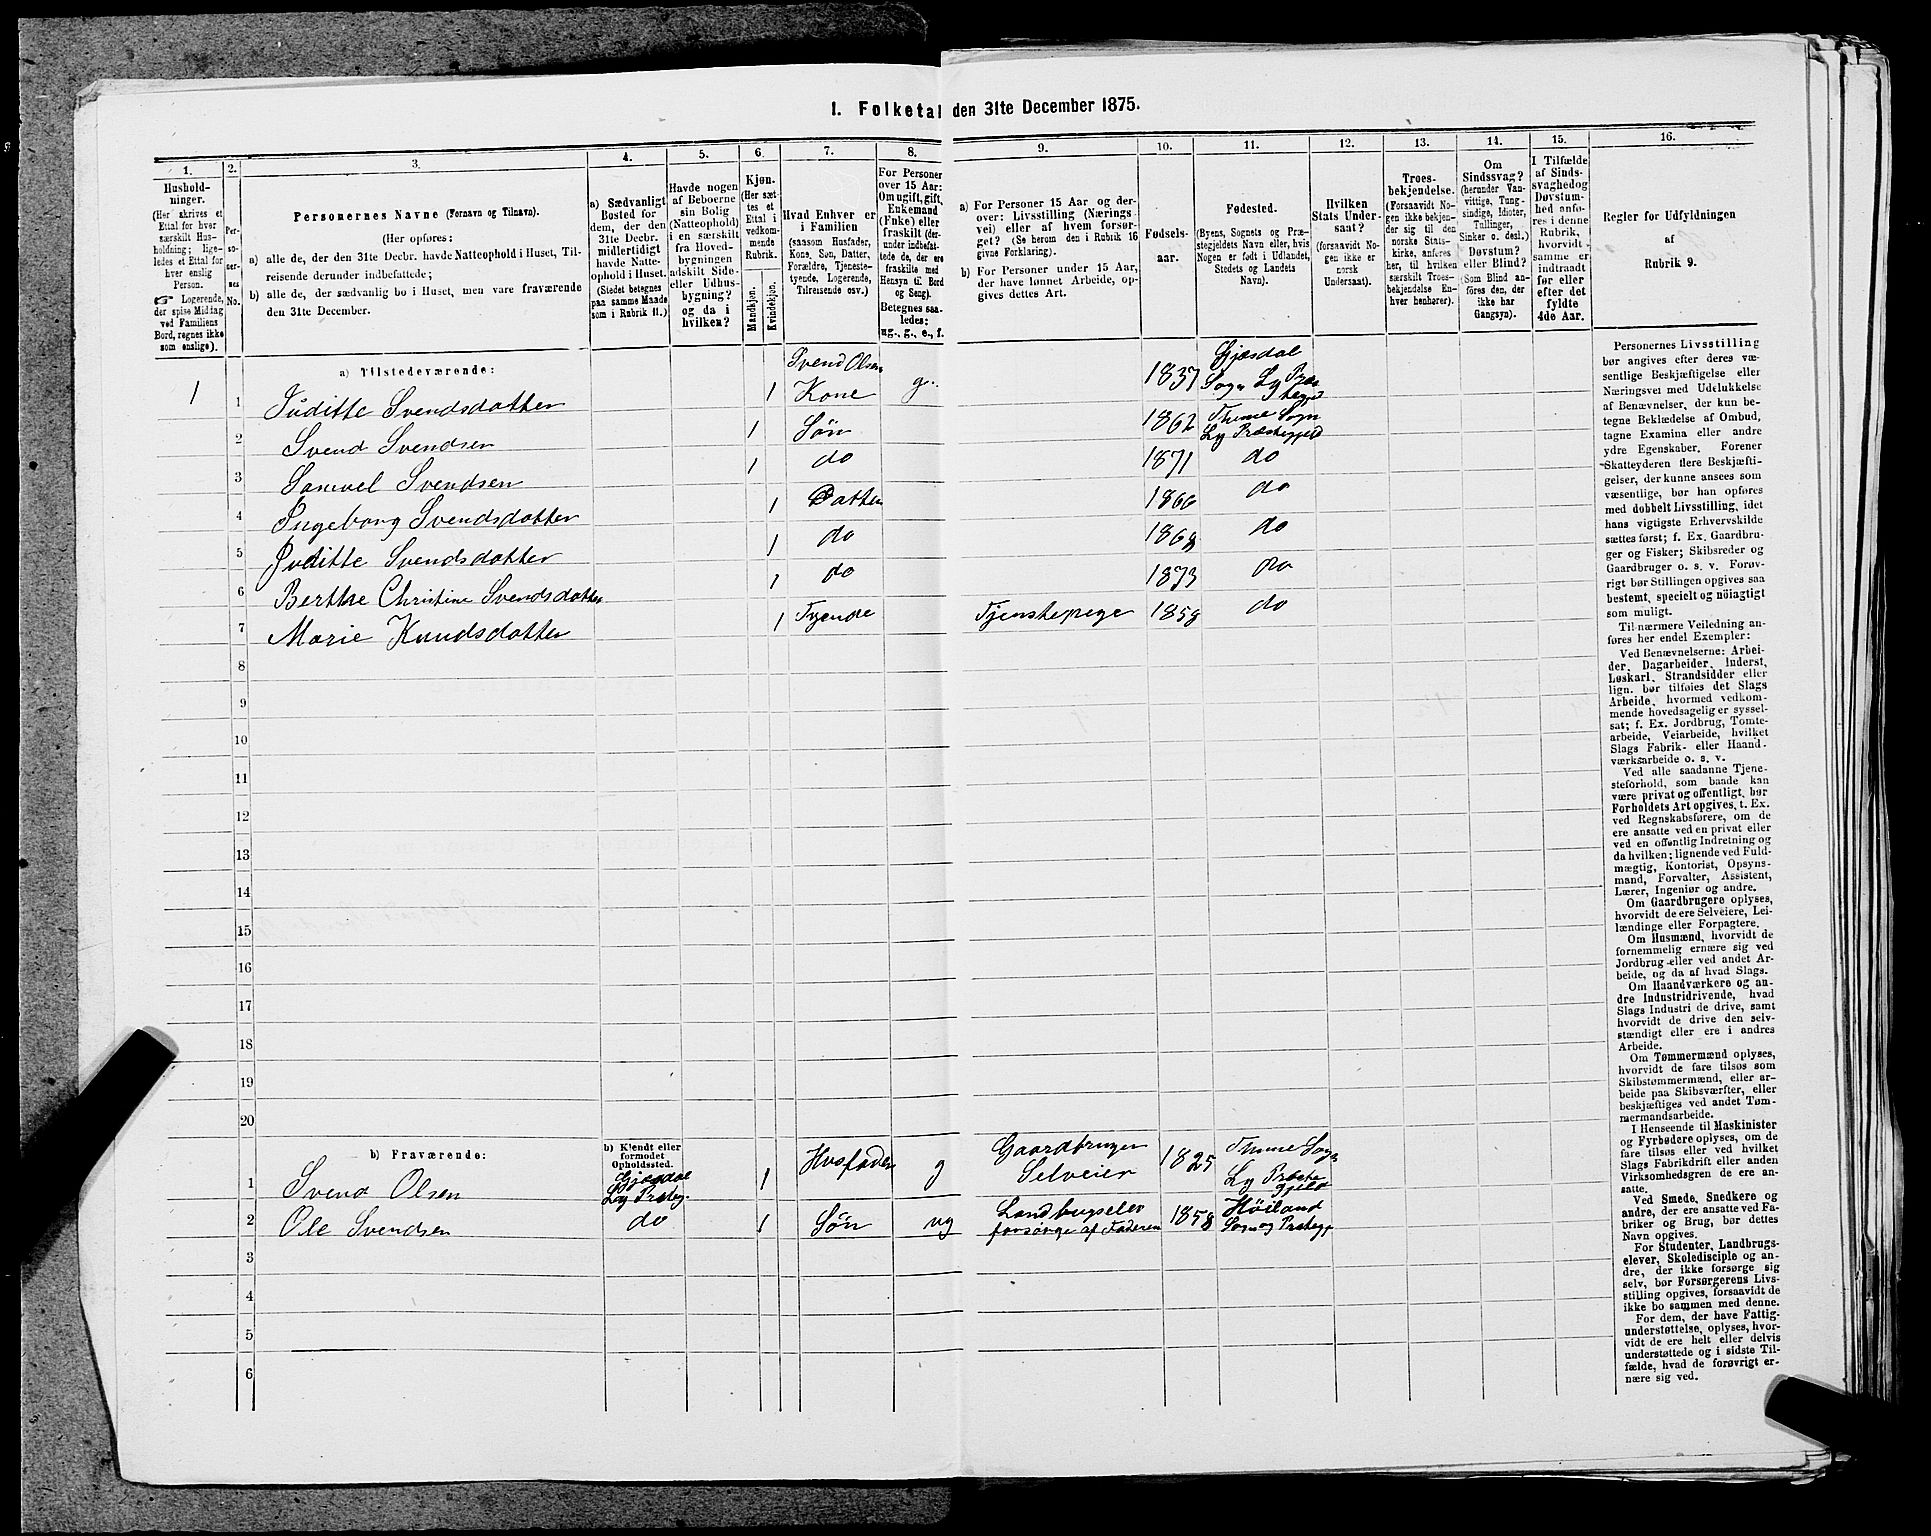 1. Folketal den 31te December 1875.
1. 2. 3. 4. 5. 6. 7. 8. 9. 10. 11. 12. 13. 14. 15. 16.
Husholdninger.
(Her skrives et
Ettal for hver
særskilt Husholdning; ligeledes
et Ettal for
hver enslig
Person.
☞ Logerende,
der spise Middag
ved Familiens
Bord, regnes ikke
som enslige).
Personernes No.
Personernes Navne (Fornavn og Tilnavn).
(Her opføres:
a) alle de, der den 31te Decbr. havde Natteophold i Huset, Tilreisende
derunder indbefattede;
b) alle de, der sædvanlig bo i Huset, men vare fraværende
den 31te December.
a) Sædvanligt
Bosted for
dem, der den
31te Decbr.
midlertidigt
havde Natteophold
i Huset.
(Stedet betegnes
paa samme Maade
som i Rubrik 11.)
Havde nogen
af Beboerne
sin Bolig
(Natteophold)
i en særskilt
fra Hovedbygningen
adskilt Side-
eller Udhusbygning?
og da i
hvilken?
Kjøn.
(Her sættes
et
Ettal i
vedkommende
Rubrik.
Mandkjøn.
Kvindekjøn.
Hvad Enhver er
i Familien
(saasom Husfader,
Kone, Søn, Datter,
Forældre, Tjenestetyende,
Logerende,
Tilreisende osv.)
For Personer
over 15 Aar:
Om ugift, gift,
Enkemand
(Enke) eller
fraskilt (derunder
indbefattede
de, der ere
fraskilte med
Hensyn til Bord
og Seng).
Betegnes saaledes:
ug., g., e., f.
a) For Personer 15 Aar og derover:
Livsstilling (Næringsvei)
eller af hvem forsørget?
(Se herom den i Rubrik 16
givne Forklaring).
b) For Personer under 15 Aar,
der have lønnet Arbeide, opgives
dettes Art.
Fødselsaar.
Fødested.
(Byens, Sognets og Præstegjeldets
Navn, eller hvis
Nogen er født i Udlandet,
Stedets og Landets
Navn).
Hvilken
Stats Undersaat?
(forsaavidt Nogen
ikke er
norsk
Undersaat).
Troesbekjendelse.
(Forsaavidt Nogen
ikke bekjender
sig til den
norske Statskirke,
anføres
her, til hvilken
særskilt Troesbekjendelse
Enhver
henhører).
Om
Sindssvag?
(herunder Vanvittige,
Tungsindige,
Idioter,
Tullinger,
Sinker o. desl.)
Døvstum?
eller Blind?
(Som Blind anføres
den, der
ikke har
Gangsyn).
I Tilfælde
af Sindssvaghed
og
Døvstumhed
anføres
i denne
Rubrik,
hvorvidt
samme er
indtraadt
før eller
efter det
fyldte
4de Aar.
Regler for Udfyldningen
af
Rubrik 9.
a) Tilstedeværende:
1 1 Juditte Svendsdatter 1 Svend Olsen Kone g. 1837 Gjæsdal Sogn Ly Præstegj
2 Svend Svendsen 1 Søn 1862 Thime Sogn Ly Præstegjeld
3 Samuel Svendsen 1 do 1871 do
4 Ingeborg Svendsdatter 1 Datter 1866 do
5 Juditte Svendsdatter 1 do 1868 do
6 Berthe Christine Svendsdatter 1 do 1873 do
7 Marie Knudsdatter 1 Tyende Tjenstepige 1858 do
8
9
10
11
12
13
14
15
16
17
18
19
20
b) Fraværende:
b) Kjendt eller
formodet
Opholdssted.
1 Svend Olsen Gjæsdal Ly Præsteg. 1 Husfader g Gaardbruger Selveier 1825 Thime Sogn Ly Præstegjeld
2 Ole Svendsen do 1 Søn ug Landbrugselev forsørge af Faderen 1858 Høiland Sogn og Præstegj
3
4
5
6
Personernes Livsstilling
bør angives efter deres væsentlige
Beskjæftigelse eller
Næringsvei med Udelukkelse
af Benævnelser, der kun betegne
Beklædelse af Ombud,
tagne Examina eller andre
ydre Egenskaber. Forener
Skatteyderen flere Beskjæftigelser,
der kunne ansees som
væsentlige, bør han opføres
med dobbelt Livsstilling, idet
hans vigtigste Erhvervskilde
sættes først; f. Ex. Gaardbruger
og Fisker; Skibsreder og
Gaardbruger o. s. v. Forøvrigt
bør Stillingen opgives saa
bestemt, specielt og nøiagtigt
som muligt.
Til nærmere Veiledning anføres
her endel Exempler:
Ved Benævnelserne: Arbeider,
Dagarbeider, Inderst,
Løskarl, Strandsidder eller
lign. bør tilføies det Slags
Arbeide, hvormed vedkommende
hovedsagelig er sysselsat;
f. Ex. Jordbrug, Tomtearbeide,
Veiarbeide, hvilket
Slags Fabrik- eller Haandværksarbeide
o. s. v.
Ved alle saadanne Tjenesteforhold,
som baade kan
være privat og offentligt, bør
Forholdets Art opgives, t. Ex.
ved Regnskabsførere, om de
ere ansatte ved en privat eller
ved en offentlig Indretning og
da hvilken; lignende ved Fuldmægtig,
Kontorist, Opsynsmand,
Forvalter, Assistent,
Lærer, Ingeniør og andre.
Om Gaardbrugere oplyses,
hvorvidt de ere Selveiere, Leilændinge
eller Forpagtere.
Om Husmænd, hvorvidt de
fornemmelig ernære sig ved
Jordbrug eller ved andet Arbeide,
og da af hvad Slags.
Om Haandværkere og andre
Industridrivende, hvad
Slags Industri de drive, samt
hvorvidt de drive den selvstændigt
eller ere i andres
Arbeide.
Om Tømmermænd oplyses,
hvorvidt de fare tilsøs som
Skibstømmermænd, eller arbeide
paa Skibsværfter, eller
beskjæftiges ved andet Tømmermandsarbeide.
I Henseende til Maskinister
og Fyrbødere oplyses, om de
fare tilsøs eller ved hvilket
Slags Fabrikdrift eller anden
Virksomhedsgren de ere ansatte.
Ved Smede, Snedkere og
andre, der ere ansatte ved Fabriker
og Brug, bør dettes
Navn opgives.
For Studenter, Landbrugselever,
Skoledisciple og andre,
der ikke forsørge sig
selv, bør Forsørgerens Livsstilling
opgives, forsaavidt de
ikke bo sammen med denne.
For dem, der have Fattigunderstøttelse,
oplyses, hvorvidt
de ere helt eller delvis
understøttede og i sidste Tilfælde,
hvad de forøvrigt ernære
sig ved.